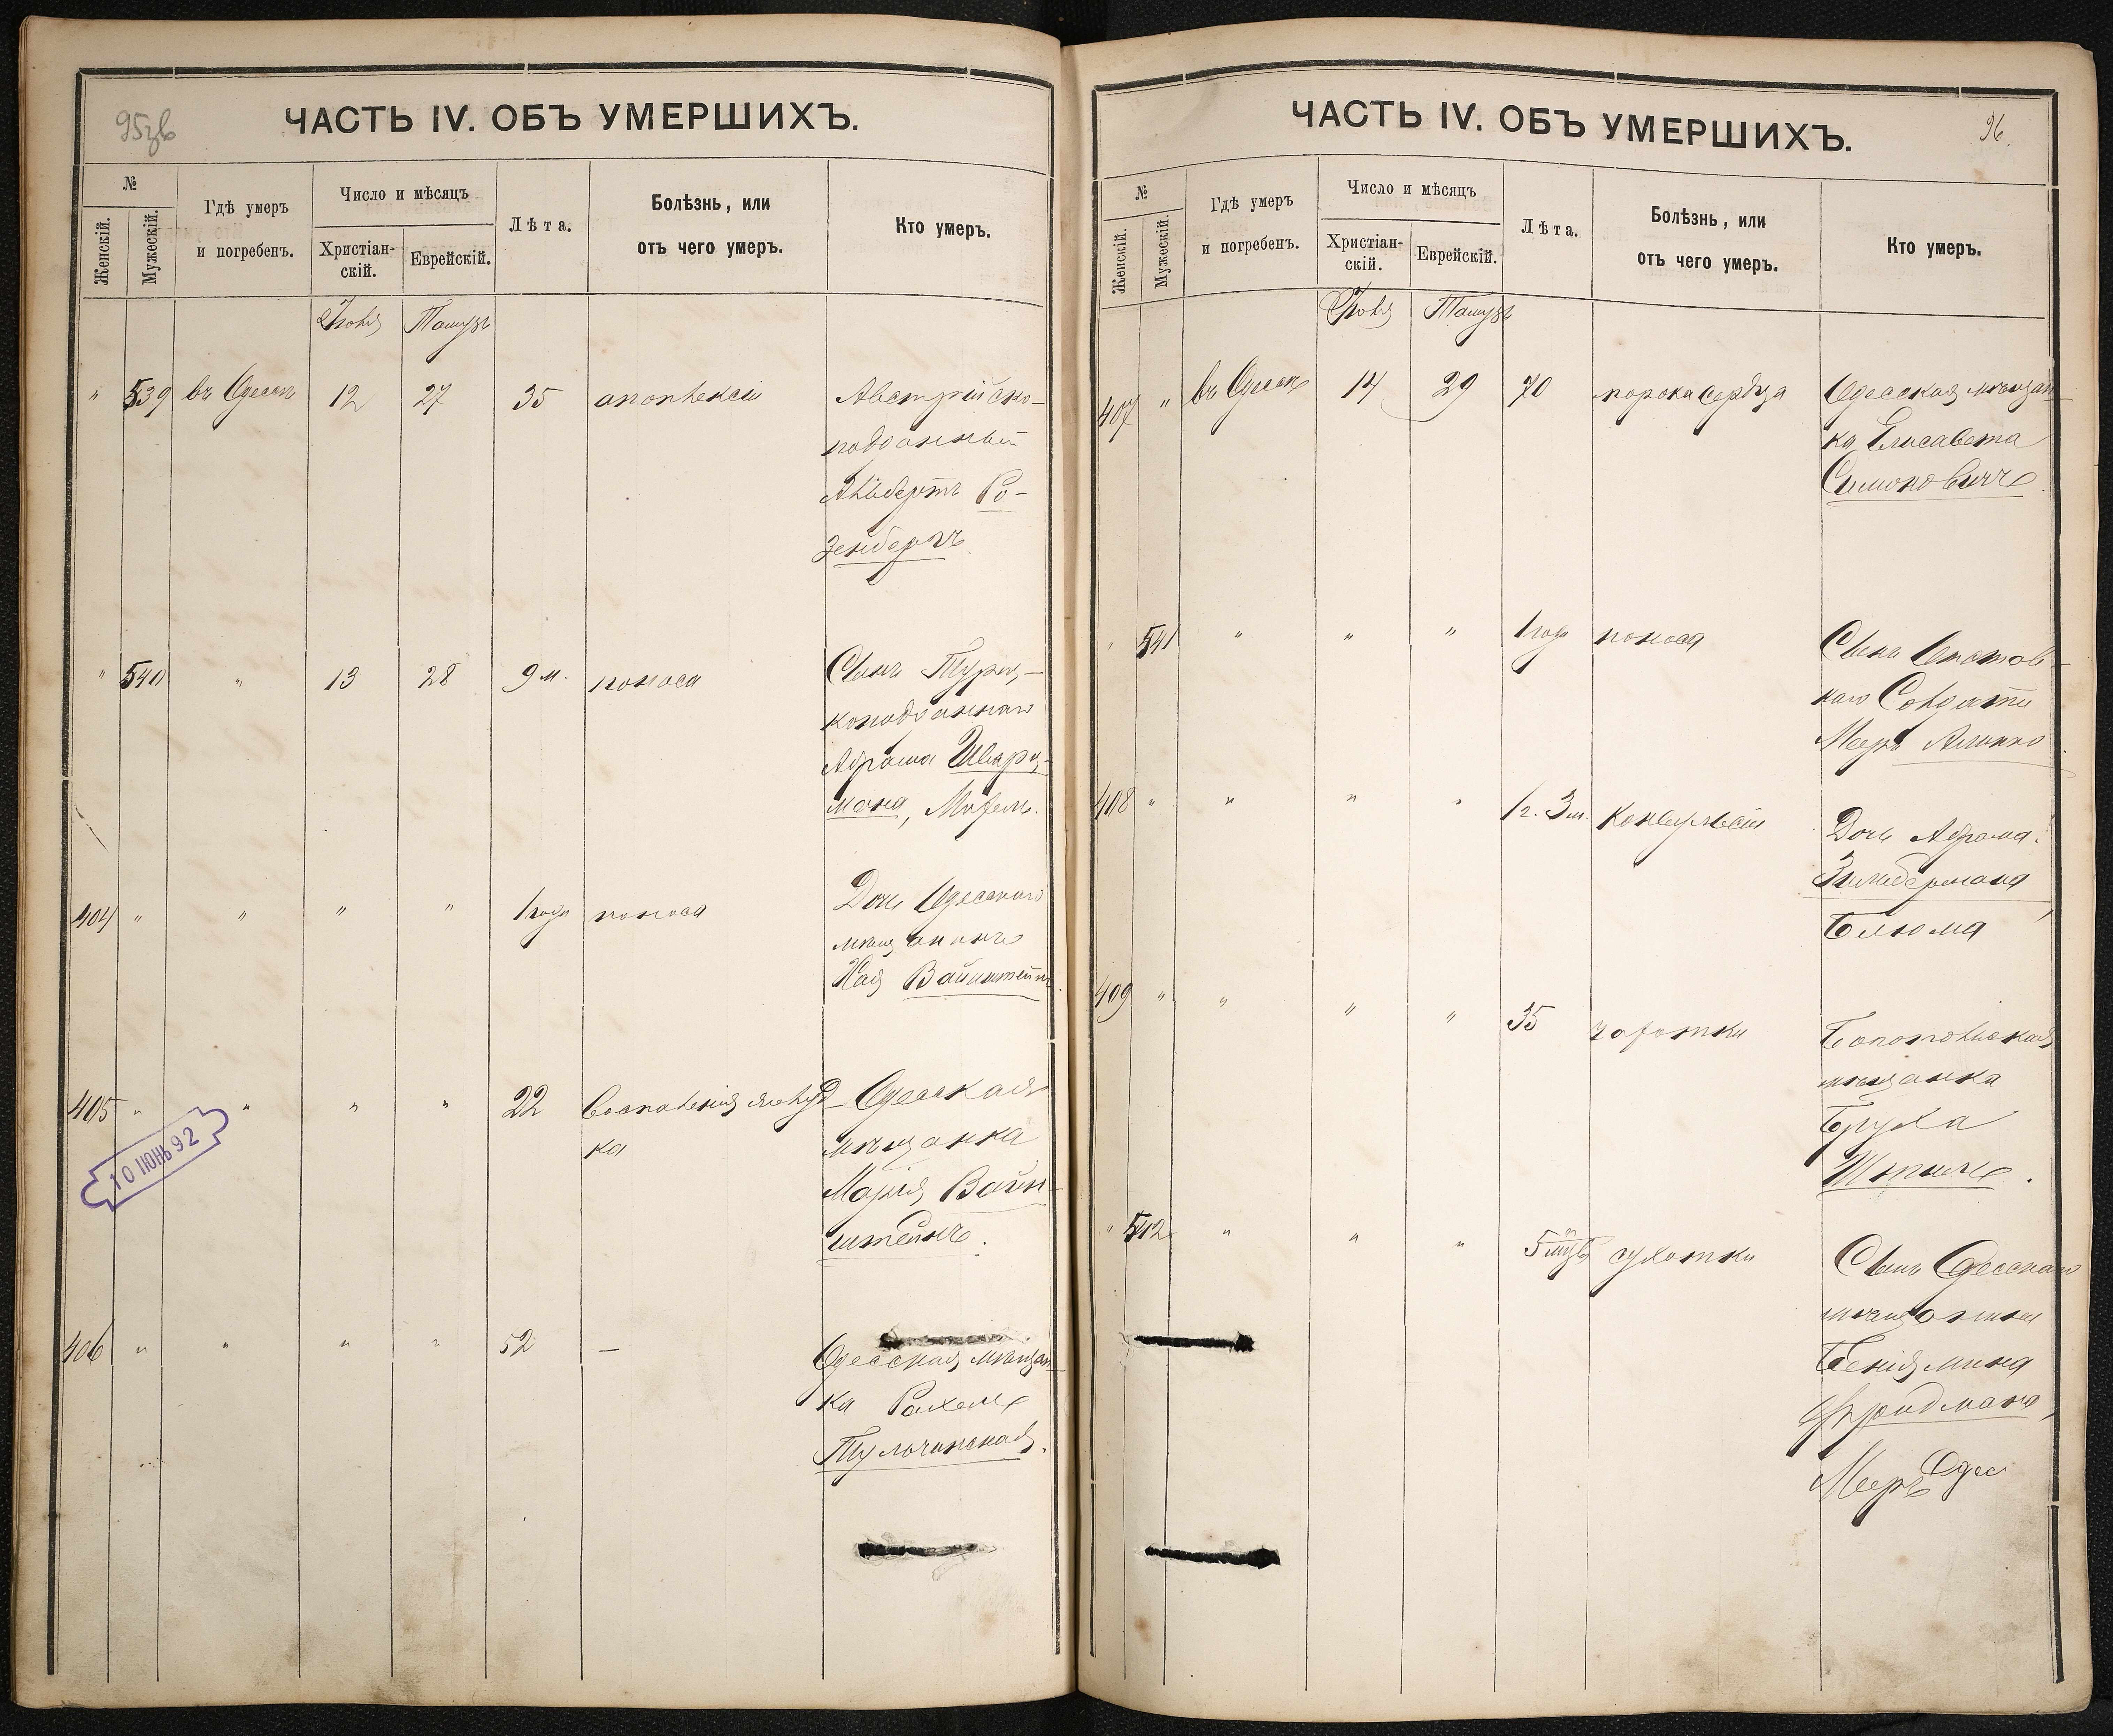 95зв
ЧАСТЬ IV. ОБЪ УМЕРШИХЪ.
№
Женскій.
Мужескій.
Гдѣ умеръ
и погребенъ.
Число и мѣсяцъ
Христіан-
скій.
Еврейскій.
Лѣта.
Болѣзнь, или
отъ чего умеръ.
Кто умеръ.
Іюля Тамузъ
" 539 въ Одессѣ 12 27 35 апоплексіи Австрійско-
подданный
Альбертъ Ро-
зенбергъ
" 540 " 13 28 9 м. поноса Сынъ Турец-
коподданнаго
Абрама Шварц-
мана,
404 " " " " 1 года поноса Дочь Одесскаго
мѣщанина
Хая Вайнштейнъ.
405 " " " " 22 Воспаленія желуд- Одесская
ка мѣщанка
Марія Вайн-
штейнъ.
10 ІЮНЬ 92
406 " " " " 52 — Одесская мѣщан-
ка Рахель
Тульчинская.
96.
ЧАСТЬ IV. ОБЪ УМЕРШИХЪ.
№
Женскій.
Мужескій.
Гдѣ умеръ
и погребенъ.
Число и мѣсяцъ
Христіан-
скій.
Еврейскій.
Лѣта.
Болѣзнь, или
отъ чего умеръ.
Кто умеръ.
Іюля Тамузъ
407 " въ Одессѣ 14 29 70 порока сердца Одесская мѣщан-
ка Елисавета
Симоновичъ
" 541 " " " 1 года поноса Сынъ Отстав-
наго Солдата
Мееръ
408 " " " " 1 г. 3 м. Конвульсіи Дочь Абрама
Зильбермана,
Блюма
409 " " " " 35 чахотки
мѣщанка
Бруха
" 542 " " " 5 мѣс. сухотки Сынъ Одесскаго
мѣщанина
Беніямина
Фридмана,
Мееръ